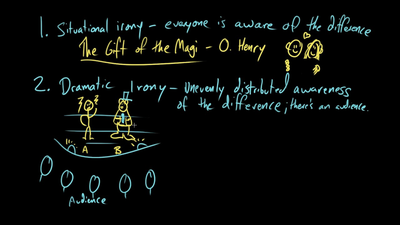 1. Situational irony – everyone is aware of the difference
The Gift of the Magi – O. Henry
2. Dramatic Irony – Unevenly distributed awareness
of the difference; there's an audience.
A B
Audience